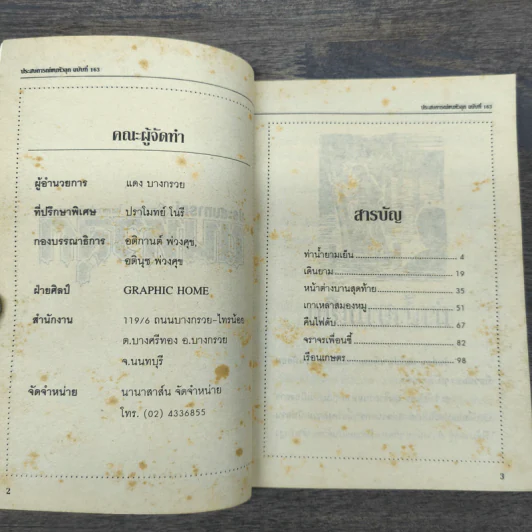 ประสบการณ์คนหัวลุก ฉบับที่ 163
คณะผู้จัดทำ
ผู้อำนวยการ แดง บางกรวย
ที่ปรึกษาพิเศษ ปราโมทย์ ในรี
กองบรรณาธิการ อติกานต์ พ่วงศุข,
อตินุช พ่วงศุข
ฝ่ายศิลป์ GRAPHIC HOME
สำนักงาน 119/6 ถนนบางกรวย-ไทรน้อย
ต.บางศรีทอง อ.บางกรวย
จ.นนทบุรี
จัดจำหน่าย นานาสาส์น จัดจำหน่าย
โทร. (02) 4336855
2
ประสบการณ์คนหัวลุก ฉบับที่ 163
สารบัญ
ท่าน้ำยามเย็น 4
เดินยาม 19
หน้าต่างบานสุดท้าย 35
เกาเหลาสมองหมู 51
คืนไฟดับ 67
จราจรเพื่อนชี้ 82
เรือนเกษตร 98
3